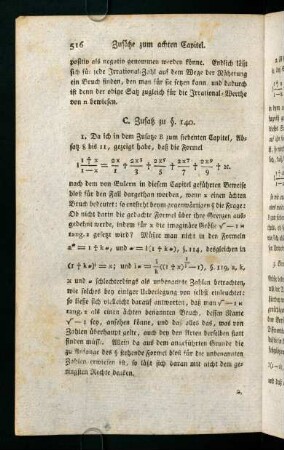 516 Zusätze zum achten Capitel.
positiv als negativ genommen werden könne. Endlich läßt
sich für jede Irrational-Zahl auf dem Wege der Näherung
ein Bruch finden, den man für sie setzen kann, und dadurch
ist denn der obige Satz zugleich für die Irrational-Werthe
von n bewiesen.
C. Zusatz zu §. 140.
1. Da ich in dem Zusatze B zum siebenten Capitel, Ab-
satz 8 bis 11, gezeigt habe, daß die Formel
l (1 + x)/(1 − x) = 2x/1 + 2x³/3 + 2x⁵/5 + 2x⁷/7 + 2x⁹/9 + ꝛc.
nach dem von Eulern in diesem Capitel geführten Beweise
bloß für den Fall dargethan worden, wenn x einen ächten
Bruch bedeutet: so entsteht beym gegenwärtigen § die Frage:
Ob nicht darin die gedachte Formel über ihre Grenzen ausge-
dehnt werde, indem sie für die imaginäre Größe √−1 ×
tang. z gesetzt wird? Müßte man nicht in den Formeln
und ω = l(1 + kω), §. 114, desgleichen in
x und ω schlechterdings als unbenannte Zahlen betrachten,
wie solches bey einiger Ueberlegung von selbst einleuchtet:
so ließe sich vielleicht darauf antworten, daß man √−1 ×
tang. z als einen ächten benannten Bruch, dessen Name
√−1 sey, ansehen könne, und daß alles das, was von
Zahlen überhaupt gelte, auch von den Arten derselben statt
finden müsse. Allein da aus dem angeführten Grunde die
zu Anfange des § stehende Formel bloß für die unbenannten
Zahlen erwiesen ist, so läßt sich daran mit nicht dem ge-
ringsten Rechte denken.
2.